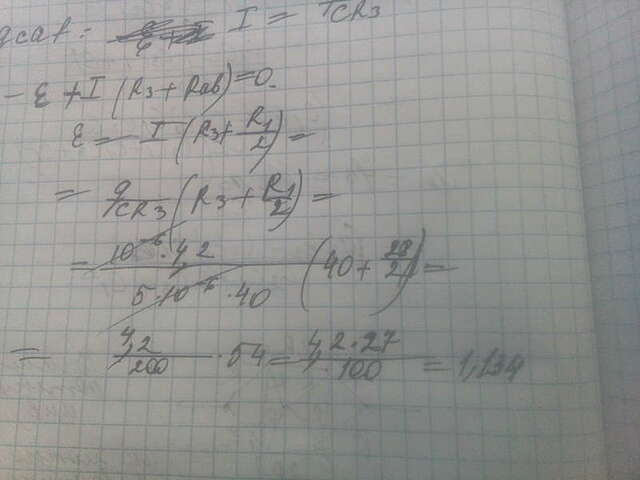 I = q/CR3
- ε + I (R3 + Rab) = 0.
ε = I (R3 + R1/2) =
= q/CR3 (R3 + R1/2) =
= 10^-6 · 4,2 / 5·10^-6 · 40 (40 + 28/2) =
= 4,2/200 · 54 = 4,2·27/100 = 1,134